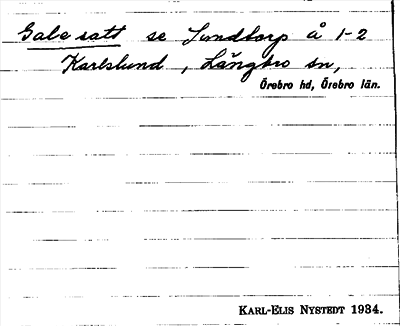 Gale satt se Lundtorp å 1-2
Karlslund, Långbro sn,
Örebro hd, Örebro län.
KARL-ELIS NYSTEDT 1984.